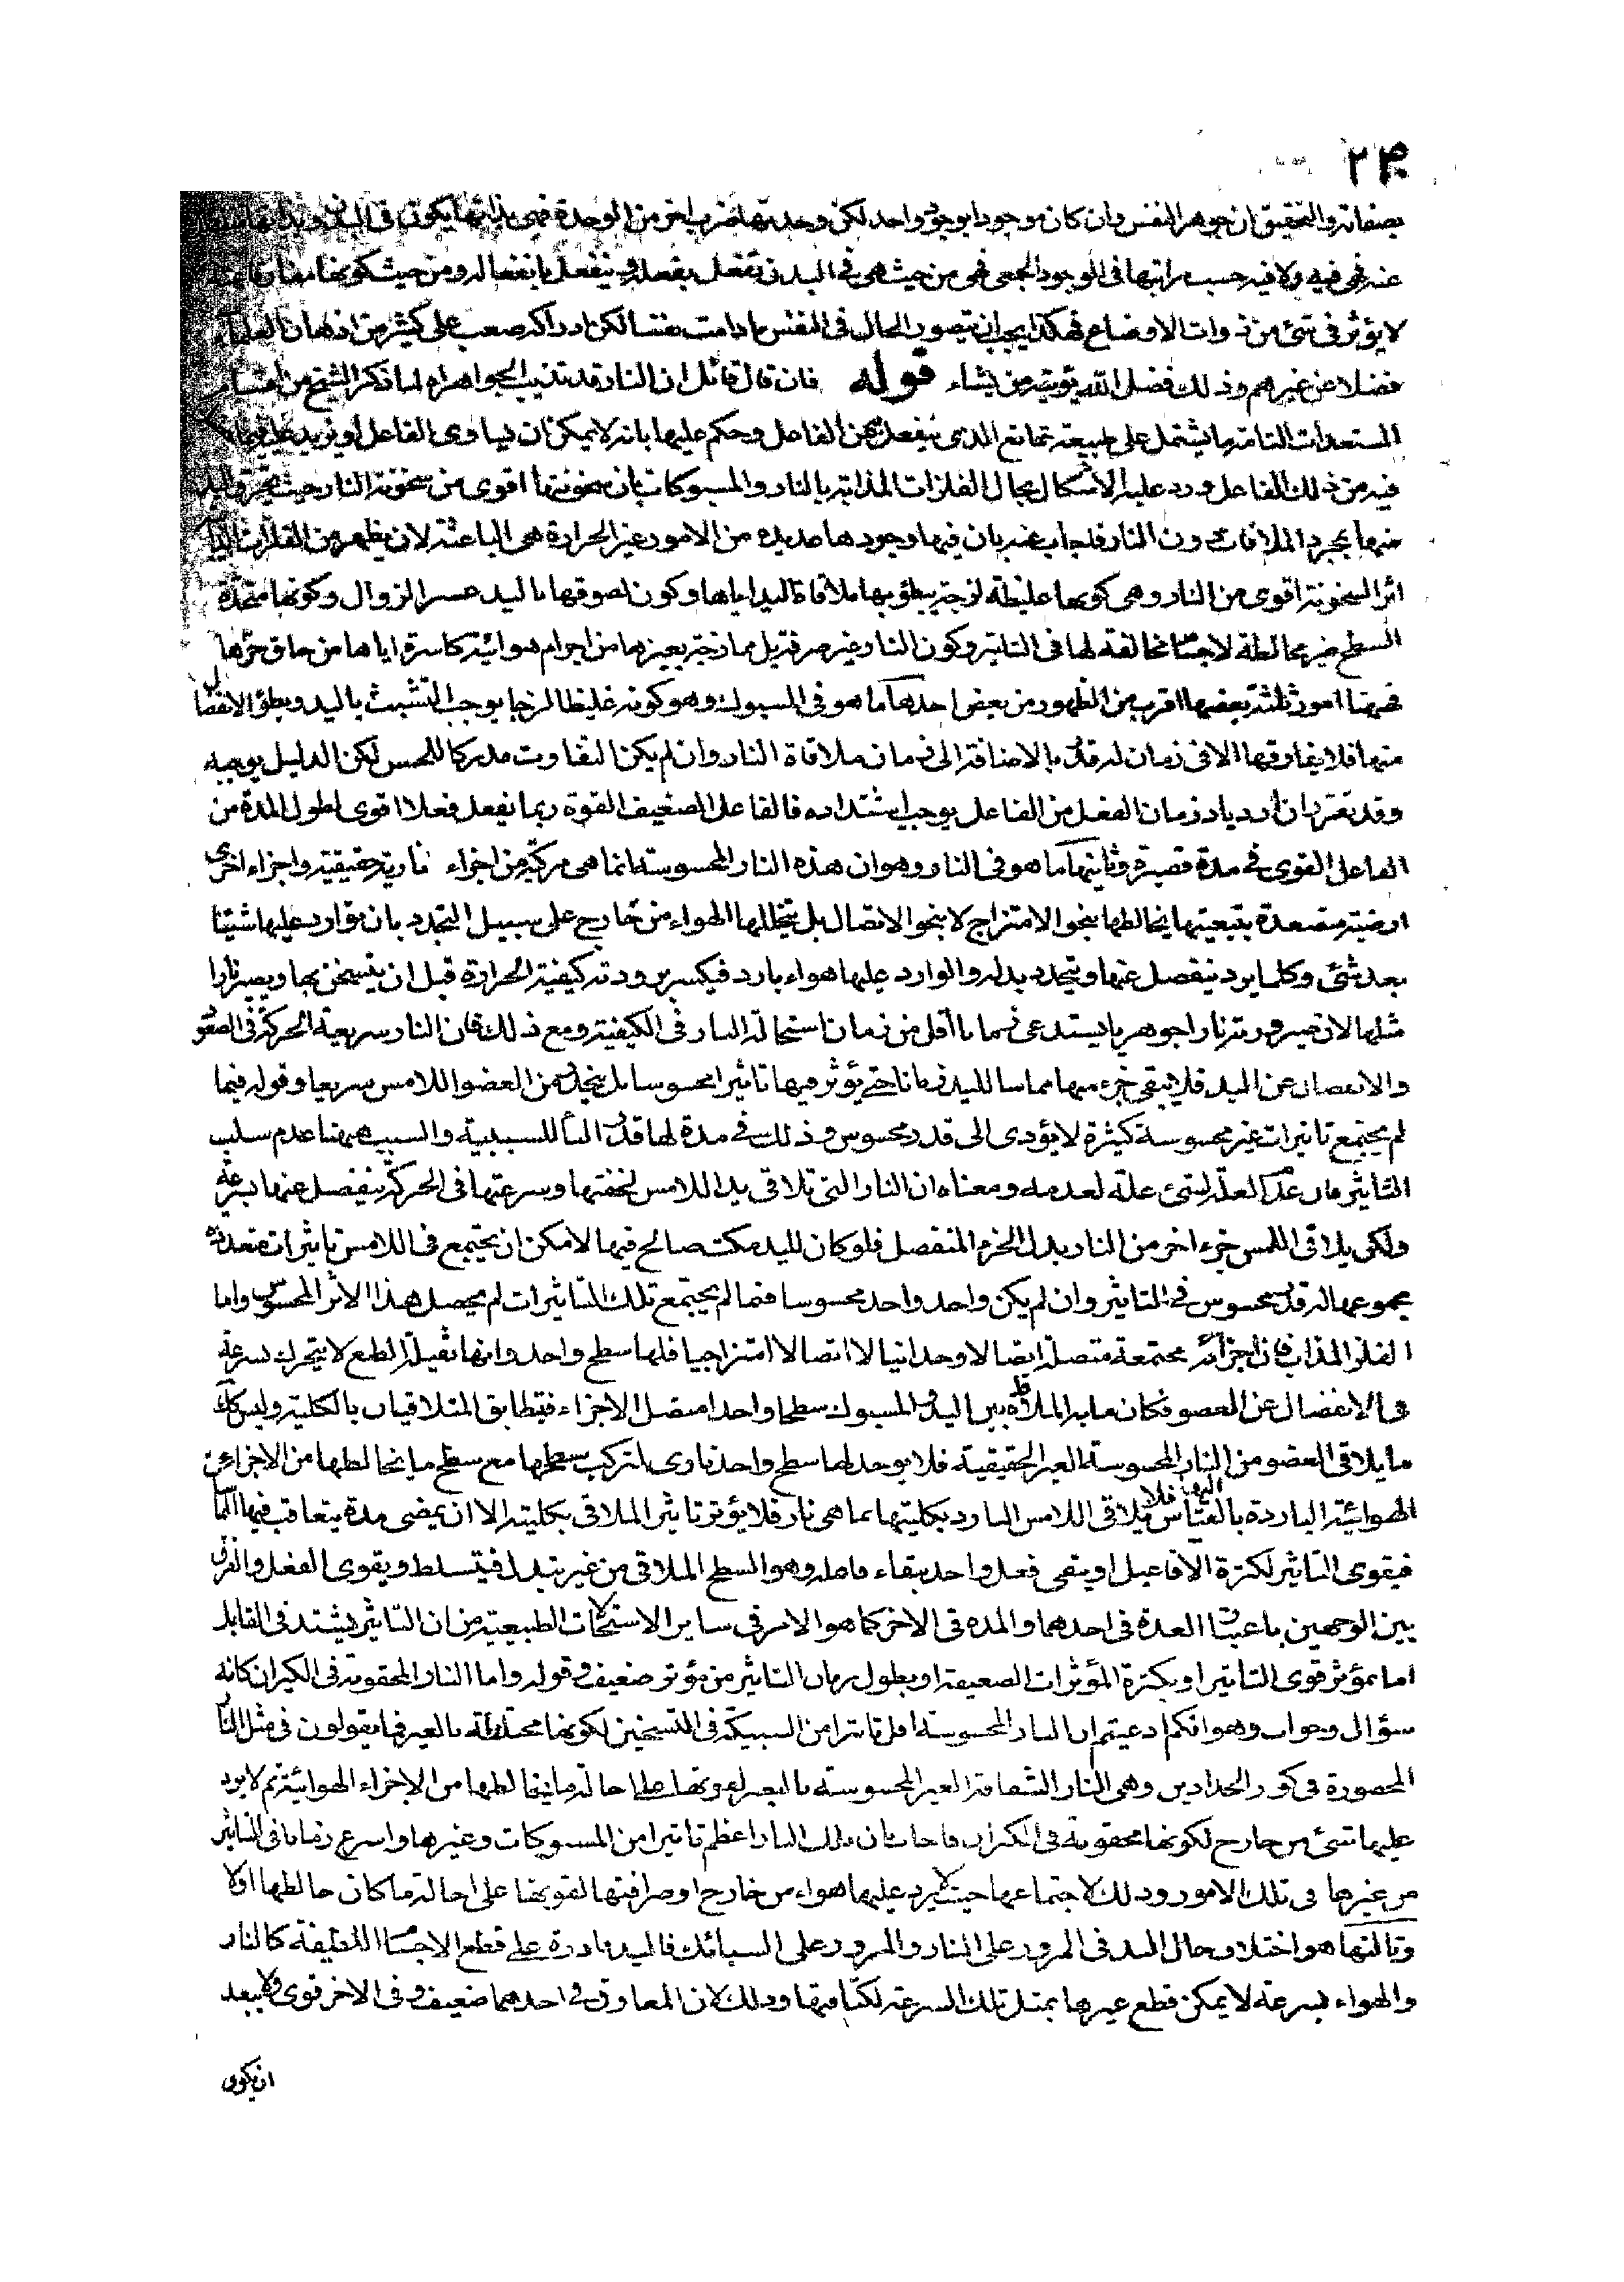 ٢٣٠
بصفاته والتحقيق ان جوهر النفس وان كان موجودا بوجود واحد لكن وحدتها ضرب اخر من الوحدة فهى بذاتها يكون فى البدن
عنه فهى فيه ولا فيه حسب مراتبها فى الوجود الجمعى فهى من حيث هى فى البدن تفعل بفعله وينفعل بانفعاله ومن حيث كونها مفارقة
لا يؤثر فى شئ من ذوات الاوضاع فهكذا يجب ان يتصور الحال فى النفس ما دامت نفسا لكن ادراكه صعب على كثير من اذهان العلماء
فضلا عن غيرهم وذلك فضل الله يؤتيه من يشاء قوله فان قال قائل ان النار قد تذيب الجواهر اه لما ذكر الشيخ من اقسام
المستعدات التامة ما يشتمل على طبيعة تمانع الذى ينفعل عن الفاعل وحكم عليها بانه لا يمكن ان يساوى الفاعل او يزيد عليه
فيه من ذلك الفاعل ورد عليه الاشكال بحال الفلزات المذابة بالنار والمسبوكات بان سخونتها اقوى من سخونة النار حيث يحترق اليد
منها بمجرد الملاقات دون النار فاجاب عنه بان فيها وجودها عديدة من الامور غير الحرارة هى الباعثة لان يظهر من الفلزات
اثر السخونة اقوى من النار وهى كونها غليظة لزجة يبطؤ بها ملاقاة اليد اياها وكون لصوقها باليد عسر الزوال وكونها متحدة
السطح غير مخالطة لاجسام مخالفة لها فى التاثير وكون النار غير صرفة بل ممازجة بغيرها من اجرام هوائية كاسرة اياها من حاق حرها
فههنا امور ثلثة بعضها اقرب من الظهور من بعض احدها ما هو فى المسبوك وهو كونه غليظا لزجا يوجب التشبث باليد وبطؤ الانفصال
منها فلا يفارقها الا فى زمان له قدر بالاضافة الى زمان ملاقاة النار وان لم يكن التفاوت مدركا للحس لكن الدليل يوجبه
وقد تقرر ان ازدياد زمان الفعل من الفاعل يوجب اشتداده فالفاعل الضعيف القوة ربما يفعل فعلا اقوى لطول المدة من
الفاعل القوى فى مدة قصيرة وثانيتها ما هو فى النار وهو ان هذه النار المحسوسة انما هى مركبة من اجزاء نارية حقيقية واجزاء اخرى
ارضية متصعدة بتبعيتها يخالطها بنحو الامتزاج لا بنحو الاتصال بل يتخللها الهواء من خارج على سبيل التجدد بان توارد عليها شيئا
بعد شئ وكلما يرد ينفصل عنها ويتجدد بدله والوارد عليها هواء بارد فيكسر برودته كيفية الحرارة قبل ان يتسخن بها ويصير نارا
مثلها لان صيرورته نارا جوهريا يستدعى زمانا اقل من زمان استحالة النار فى الكيفية ومع ذلك فان النار سريعة الحركة فى الصعود
والانفصال عن اليد فلا يبقى جزء منها مماسا لليد زمانا حتى يؤثر فيها تاثيرا محسوسا بل يتجدد عن العضو اللامس سريعا وقوله فيما
لم يجتمع تاثيرات غير محسوسة كثيرة لا يؤدى الى قدر محسوس وذلك فى مدة لها قدر الباء للسببية والسبب ههنا عدم سلب
التاثير فان عدم العلة لشئ علة لعدمه ومعناه ان النار التى تلاقى يد اللامس لخفتها وسرعتها فى الحركة ينفصل عنها بسرعة
ولكن يلاقى اللمس جزء اخر من النار بدل الجزء المنفصل فلو كان لليد مكث صالح فيها لامكن ان يجتمع فى اللامس تاثيرات متعددة
مجموعها له قدر محسوس فى التاثير وان لم يكن واحد واحد محسوسا فما لم يجتمع تلك التاثيرات لم يحصل هذا الاثر المحسوس واما
الفلز المذاب فان اجزائه مجتمعة متصلة اتصالا وحدانيا لا اتصالا امتزاجيا فلها سطح واحد وانها ثقيلة الطبع لا يتحرك بسرعة
فى الانفصال عن العضو فكان ما به الملاقاة بين اليد والمسبوك سطحا واحدا متصل الاجزاء فيتطابق المتلاقيان بالكلية وليس كك
ما يلاقى العضو من النار المحسوسة الغير الحقيقية فلا يوجد لها سطح واحد نارى لتركب سطحها مع سطح ما يخالطها من الاجزاء
الهوائية الباردة بالقياس اليها فلا يلاقى اللامس البارد بكليتها بما هى نار فلا يؤثر تاثير الملاقى بكليته الا ان يمضى مدة يتعاقب فيها
فيقوى التاثير لكثرة الافاعيل او يبقى فعل واحد ببقاء فاعله وهو السطح الملاقى من غير تبدل فيتسلط ويقوى الفعل والفرق
بين الوجهين باعتبار العدة فى احدهما والمدة فى الاخر كما هو الامر فى ساير الاستحالات الطبيعية من ان التاثير يشتد فى القابل
اما بمؤثر قوى التاثير او بكثرة المؤثرات الضعيفة او بطول زمان التاثير من مؤثر ضعيف وقوله واما النار المحقونة فى الكيران كانه
سؤال وجواب وهو انكم ادعيتم ان النار المحسوسة اقل تاثيرا من السبيكة فى التسخين لكونها مختلطة بالغير فما يقولون فى مثل النار
المحصورة فى كور الحدادين وهى النار الشفافة الغير المحسوسة بالبصر لقوتها على احالة ما يخالطها من الاجزاء الهوائية ثم لا يرد
عليها شئ من خارج لكونها محقونة فى الكيران فاجاب بان تلك النار اعظم تاثيرا من المسبوكات وغيرها واسرع زمانا فى التاثير
من غيرها فى تلك الامور وذلك لاجتماعها حيث لا يرد عليها هواء من خارج او صرافتها لقوتها على احالة ما كان خالطها اولا
وثالثها هو اختلاف حال اليد فى المرور على النار والمرور على السبائك فاليد قادرة على قطع الاجسام اللطيفة كالنار
والهواء بسرعة لا يمكن قطع غيرها بمثل تلك السرعة لكثافتها وذلك لان المعاوق فى احدهما ضعيف وفى الاخر قوى ولا يبعد
ان يكون